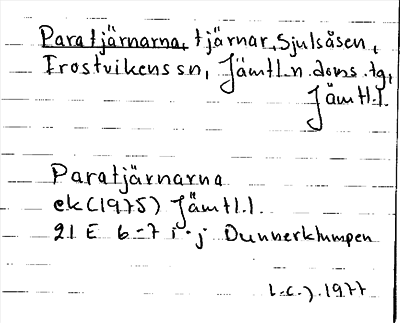 Paratjärnarna, tjärnar, Sjulsåsen,
Frostvikens sn, Jämtl.n. doms. tg,
Jämtl.l.
Paratjärnarna
ek (1975) Jämtl.l.
21 E 6-7 i-j Dunnerklumpen
1977